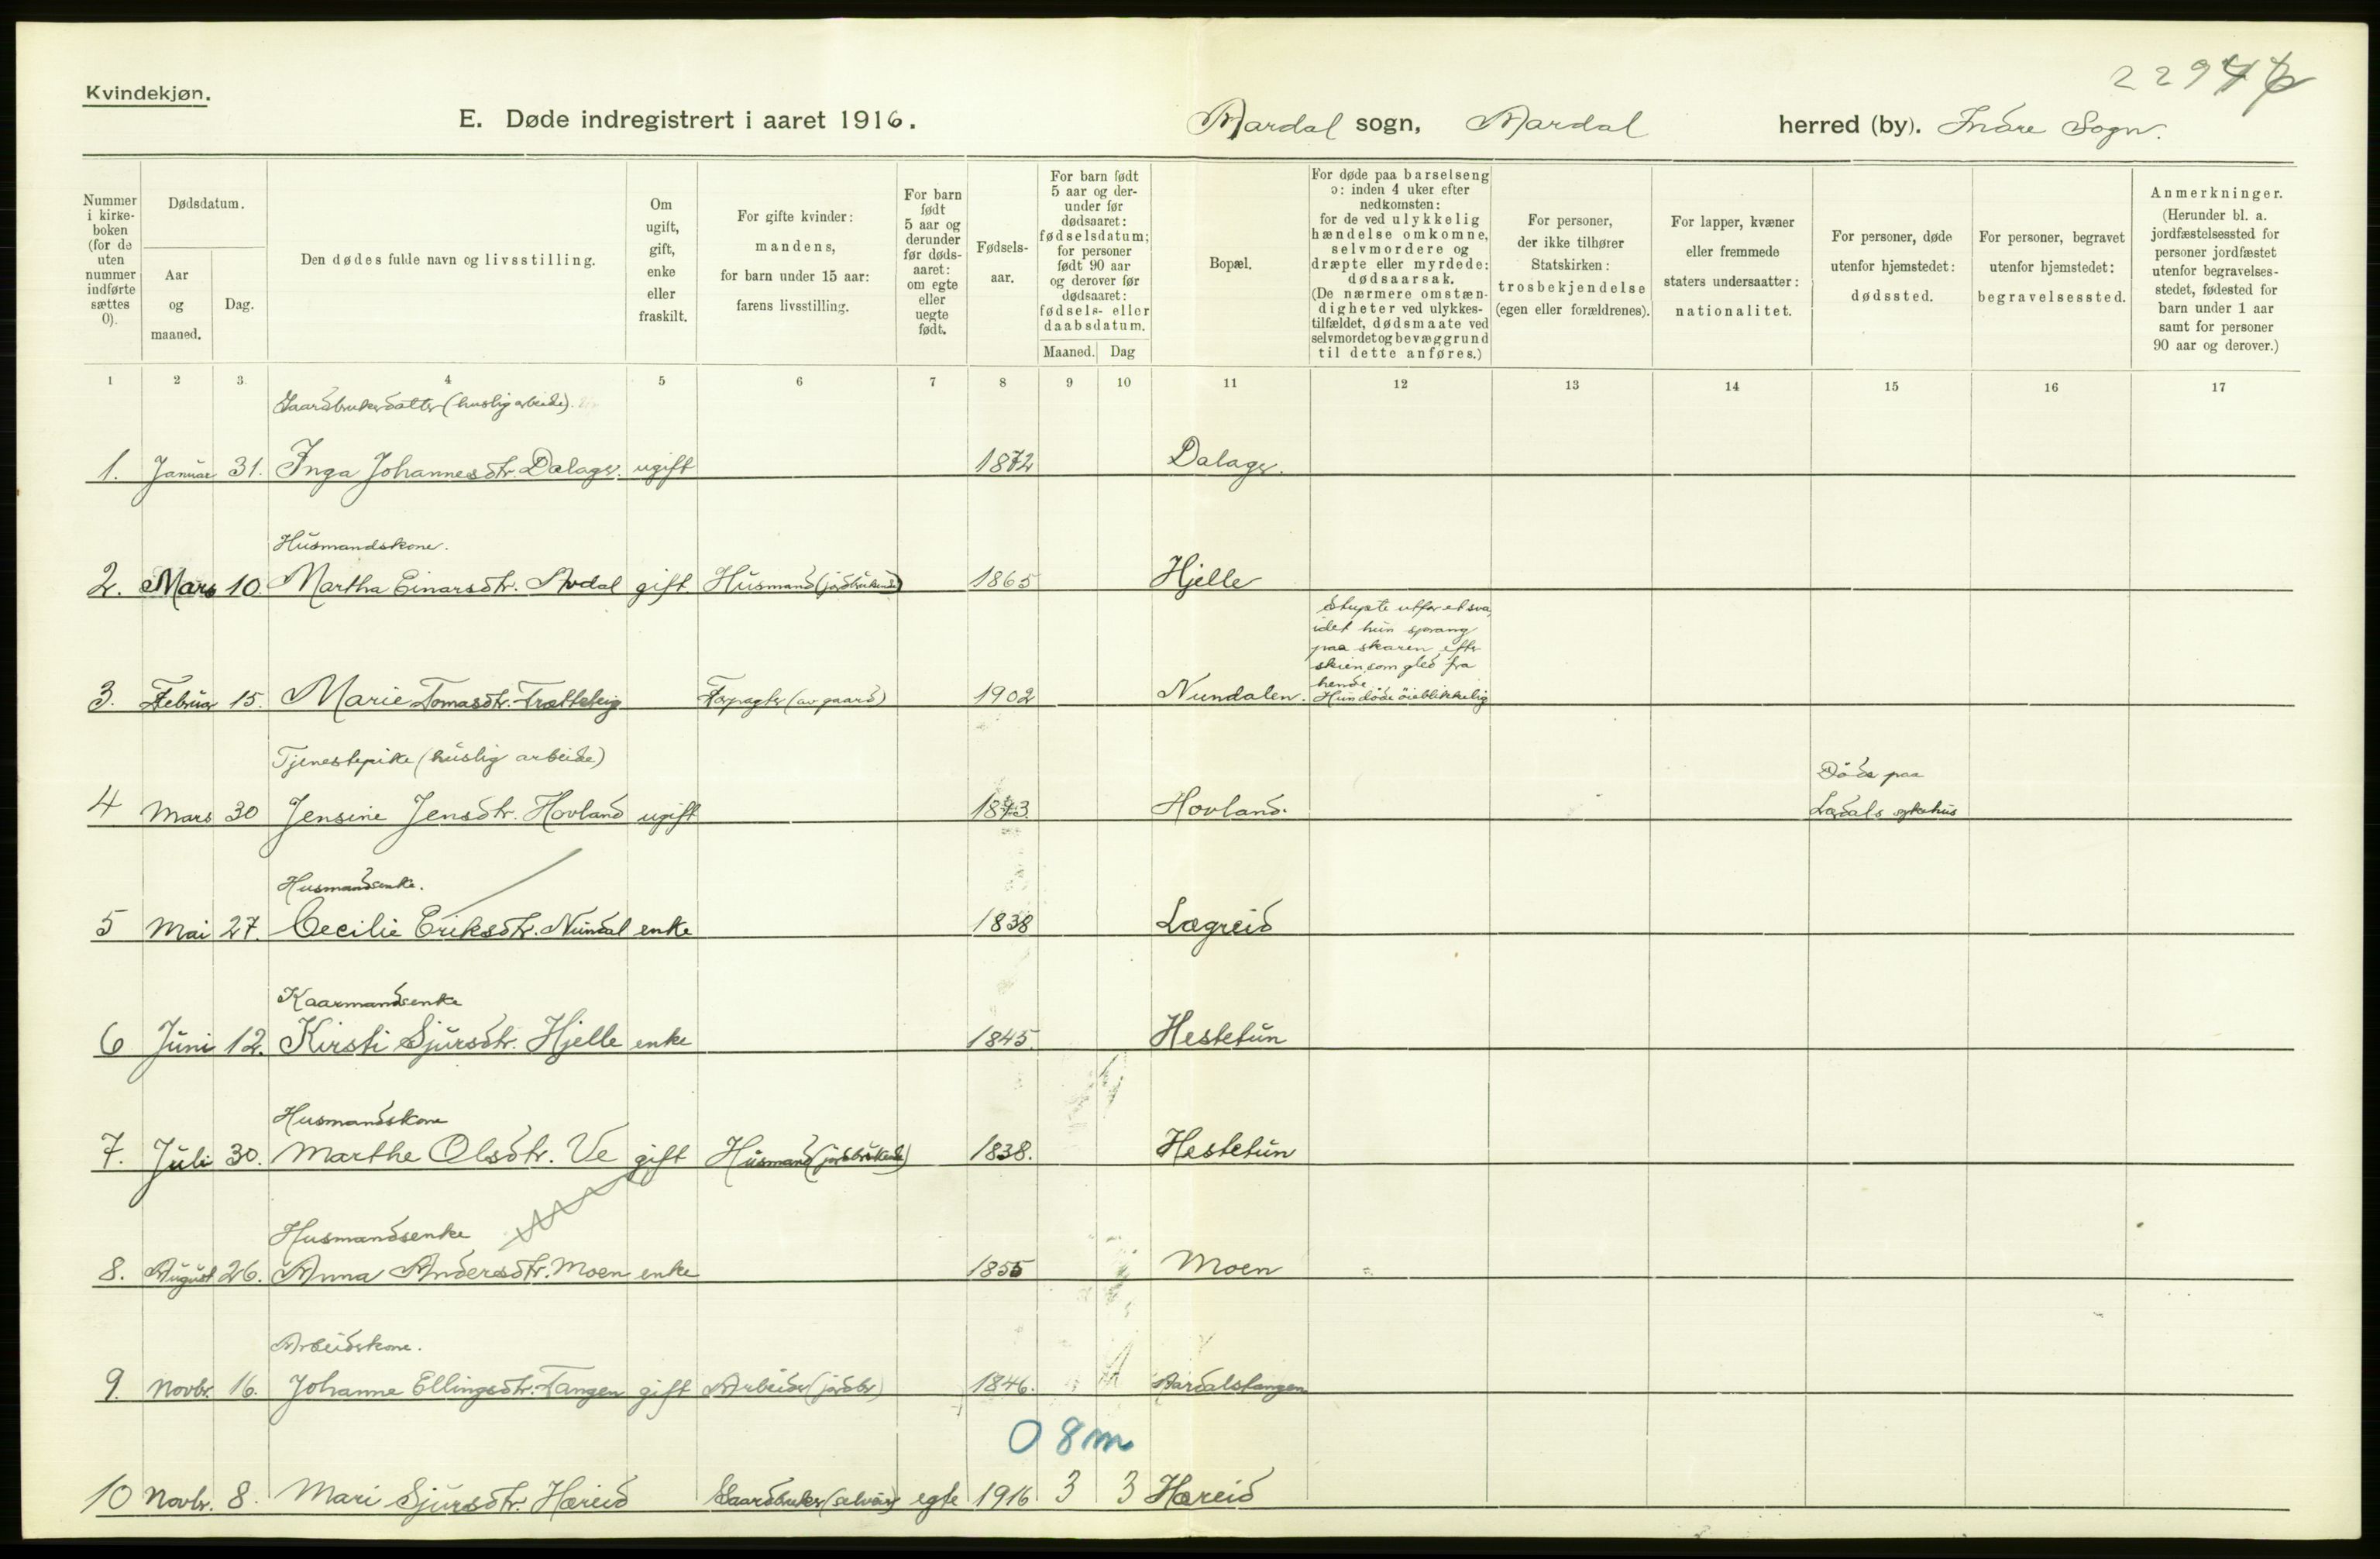 Kvindekjøn.
E. Døde indregistrert i aaret 1916.
Aardal sogn, Aardal herred (by). Indre Sogn.
Nummer i kirkeboken (for de uten nummer indførte sættes 0).
Dødsdatum.
Aar og maaned.
Dag.
Den dødes fulde navn og livsstilling.
Om ugift, gift, enke eller fraskilt.
For gifte kvinder: mandens, for barn under 15 aar: farens livsstilling.
For barn født 5 aar og derunder før dødsaaret: om egte eller uegte født.
Fødselsaar.
For barn født 5 aar og derunder før dødsaaret: fødselsdatum; for personer født 90 aar og derover før dødsaaret: fødsels- eller daabsdatum.
Maaned. Dag
Bopæl.
For døde paa barselseng ɔ: inden 4 uker efter nedkomsten: for de ved ulykkelig hændelse omkomne, selvmordere og dræpte eller myrdede: dødsaarsak. (De nærmere omstændigheter ved ulykkestilfældet, dødsmaate ved selvmordet og bevæggrund til dette anføres.)
For personer, der ikke tilhører Statskirken: trosbekjendelse (egen eller forældrenes).
For lapper, kvæner eller fremmede staters undersaatter: nationalitet.
For personer, døde utenfor hjemstedet: dødssted.
For personer, begravet utenfor hjemstedet: begravelsessted.
Anmerkninger. (Herunder bl. a. jordfæstelsessted for personer jordfæstet utenfor begravelsesstedet, fødested for barn under 1 aar samt for personer 90 aar og derover.)
1 2 3. 4 5 6 7 8 9 10 11 12 13 14 15 16 17
Gaardbrukerdatter (huslig arbeide).
1. Januar 31. Inga Johannesdtr. Dalager. ugift 1872 Dalager.
Husmandskone.
2. Mars 10. Martha Einarsdtr. Avdal gift. Husmand (jordbrukende) 1865 Hjelle
Stupte utfor et sva,
idet hun sprang
paa skaren efter
skien, som gled fra
hende.
3. Februar 15. Marie Tomasdtr. Trætteteig Forpagter (av gaard) 1902 Nundalen. Hun døde øieblikkelig
Tjenestepike (huslig arbeide)
Døde paa
4 Mars 30 Jensine Jensdtr. Hovland ugift 1873. Hovland. Lærdals sykehus
Husmandsenke.
5 Mai 27. Cecilie Eriksdtr. Nundal enke 1838 Lægreid
Kaarmandsenke
6 Juni 12. Kirsti Sjursdtr. Hjelle enke 1845. Hestetun
Husmandskone
7. Juli 30. Marthe Olsdtr. Ve gift Husmand (jordbrukende) 1838. Hestetun
Husmandsenke
8. August 26. Anna Andersdtr. Moen enke 1855 Moen
Arbeidskone.
9. Novbr. 16. Johanne Ellingsdtr. Tangen gift Arbeider (jordbr) 1846. Aardalstangen
0 8 m
10 Novbr. 8. Mari Sjursdtr. Hæreid Gaardbruker (selveier) egte 1916 3 3 Hæreid